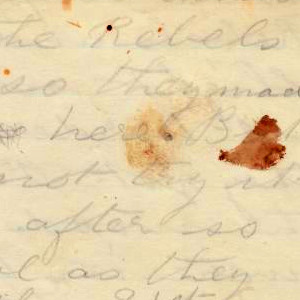 the Rebels
so they made
here! But
not try it
after so
as they